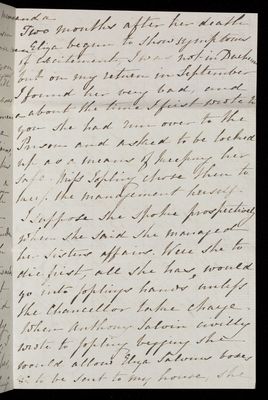 Two months after her death
Eliza began to show symptoms
of excitement, I was not in Durham
but on my return in September
I found her very bad, and
about the time I first wrote to
you she had run over to the
Prison and asked to be locked
up as a means of keeping her
safe. Miss Jopling chose then to
keep the management herself.
I suppose she spoke prospectively
when she said she managed
her sisters affairs. Were she to
die first all she has, would
go into Joplings hands unless
the Chancellor take charge.
When Anthony Salvin civilly
wrote to Jopling begging she
would allow Eliza Salvins boxes
to be sent to my house, she